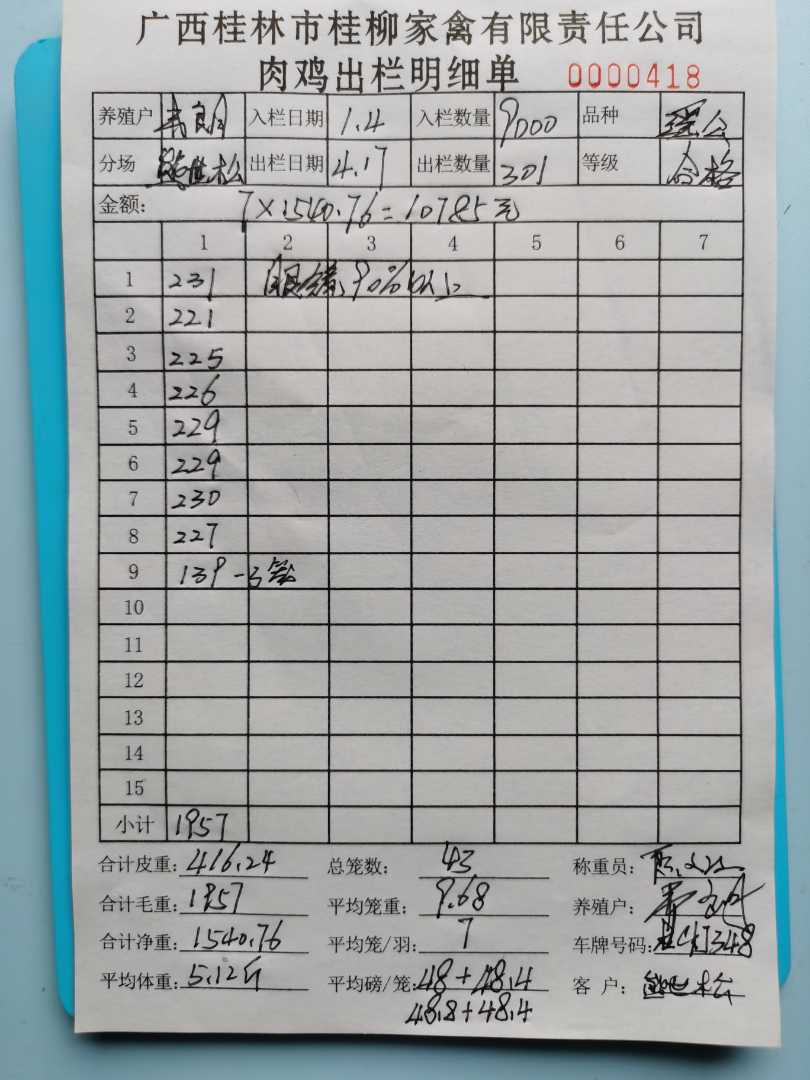 广西桂林市桂柳家禽有限责任公司
肉鸡出栏明细单 0000418
养殖户 入栏日期 1.4 入栏数量 9000 品种
分场 出栏日期 4.17 出栏数量 301 等级 合格
金额: 7×1540.76=10785元
1 2 3 4 5 6 7
1 231 90%以上
2 221
3 225
4 226
5 229
6 229
7 230
8 227
9 139-3笼
10
11
12
13
14
15
小计 1957
合计皮重: 416.24 总笼数: 43 称重员:
合计毛重: 1957 平均笼重: 9.68 养殖户:
合计净重: 1540.76 平均笼/羽: 7 车牌号码:
平均体重: 5.12斤 平均磅/笼: 48+48.4 客户:
48.8+48.4